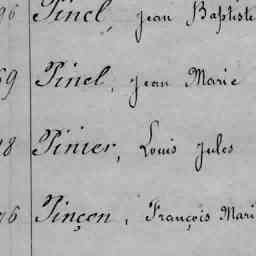 96 Pinel, Jean Baptiste
69 Pinel, Jean Marie
18 Pinier, Louis Jules
76 Pinçon, François Mari